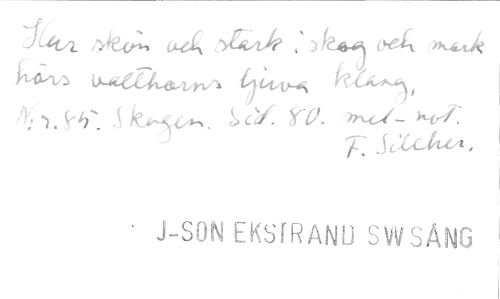 Hur skön och stark i skog och mark
hörs valthorns ljuva klang,
N:r.85. Skogen. Sid. 80. mel-not.
F. Silcher.
J-SON EKSTRAND SW SÅNG